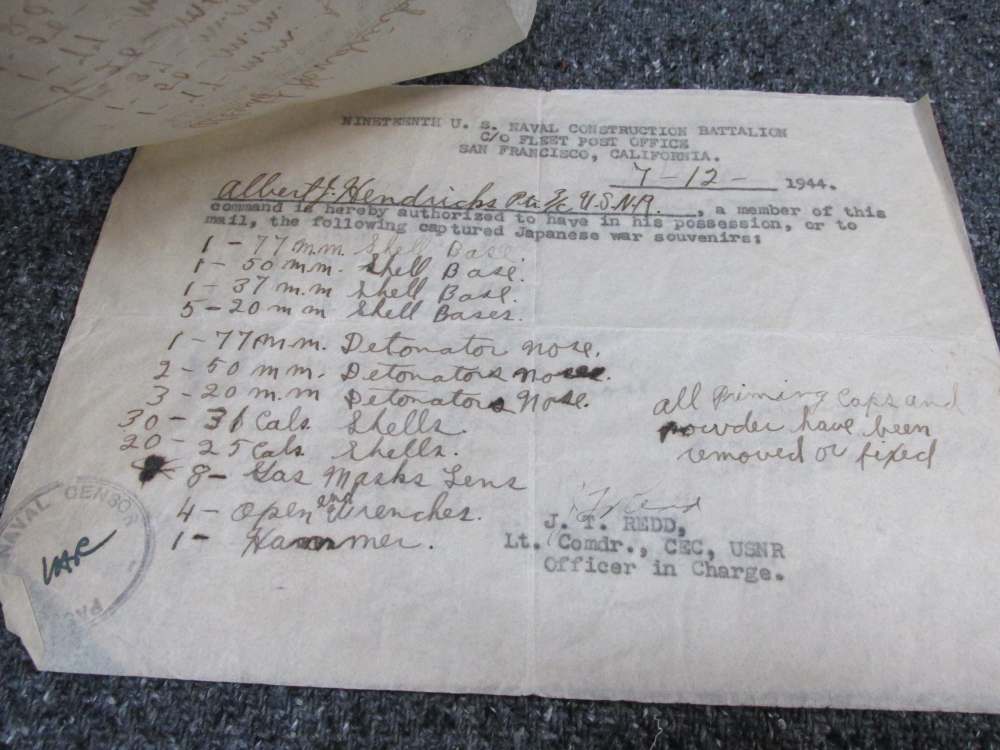 NINETEENTH U. S. NAVAL CONSTRUCTION BATTALION
C/O FLEET POST OFFICE
SAN FRANCISCO, CALIFORNIA.
7-12- 1944.
Albert J. Hendricks U.S.N.R. , a member of this
command is hereby authorized to have in his possession, or to
mail, the following captured Japanese war souvenirs:
1 - 77 m.m. Shell Base.
1 - 50 m.m. Shell Base.
1 - 37 m.m Shell Base.
5 - 20 m m Shell Bases.
1 - 77 m.m. Detonator nose.
2 - 50 m m. Detonators nose.
3 - 20 m.m Detonators Nose.
30 - 31 Cals. Shells.
20 - 25 Cals. Shells.
8 - Gas Masks Lens
4 - Open end Wrenches.
1 - Hammer.
all Priming Caps and
powder have been
removed or fixed
J. T. REDD,
Lt. Comdr., CEC, USNR
Officer in Charge.
NAVAL CENSOR